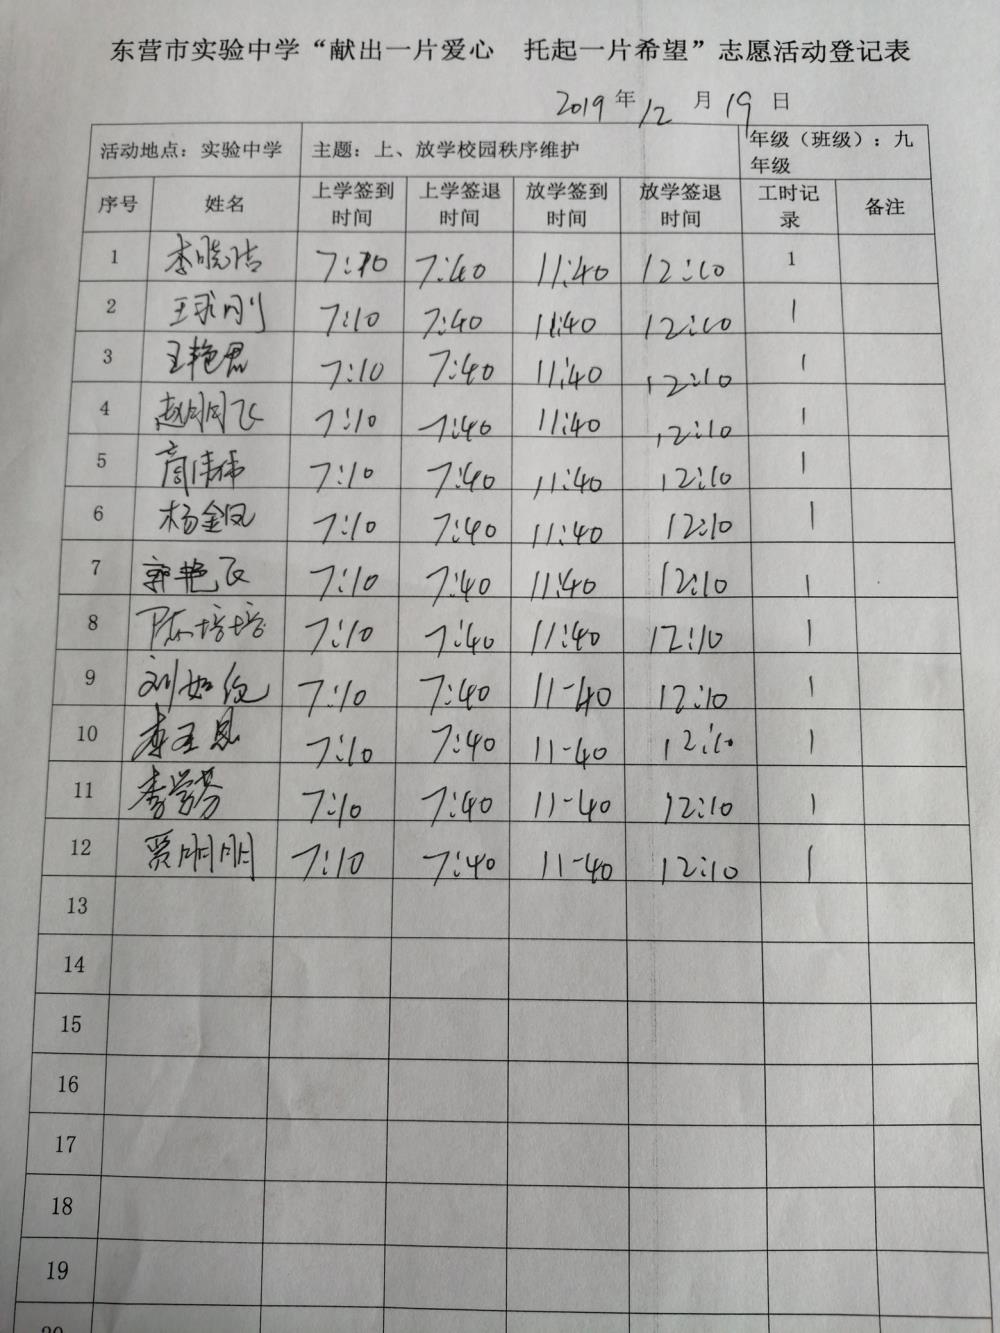 东营市实验中学“献出一片爱心 托起一片希望”志愿活动登记表
2019年12月19日
活动地点：实验中学 主题：上、放学校园秩序维护 年级（班级）：九年级
序号 姓名 上学签到时间 上学签退时间 放学签到时间 放学签退时间 工时记录 备注
1 李晓洁 7:10 7:40 11:40 12:10 1
2 王 刚 7:10 7:40 11:40 12:10 1
3 王艳君 7:10 7:40 11:40 12:10 1
4 赵月飞 7:10 7:40 11:40 12:10 1
5 7:10 7:40 11:40 12:10 1
6 杨金凤 7:10 7:40 11:40 12:10 1
7 郭艳飞 7:10 7:40 11:40 12:10 1
8 陈培培 7:10 7:40 11:40 12:10 1
9 刘如 7:10 7:40 11-40 12:10 1
10 李 7:10 7:40 11-40 12:10 1
11 李学芬 7:10 7:40 11-40 12:10 1
12 贾明明 7:10 7:40 11-40 12:10 1
13
14
15
16
17
18
19